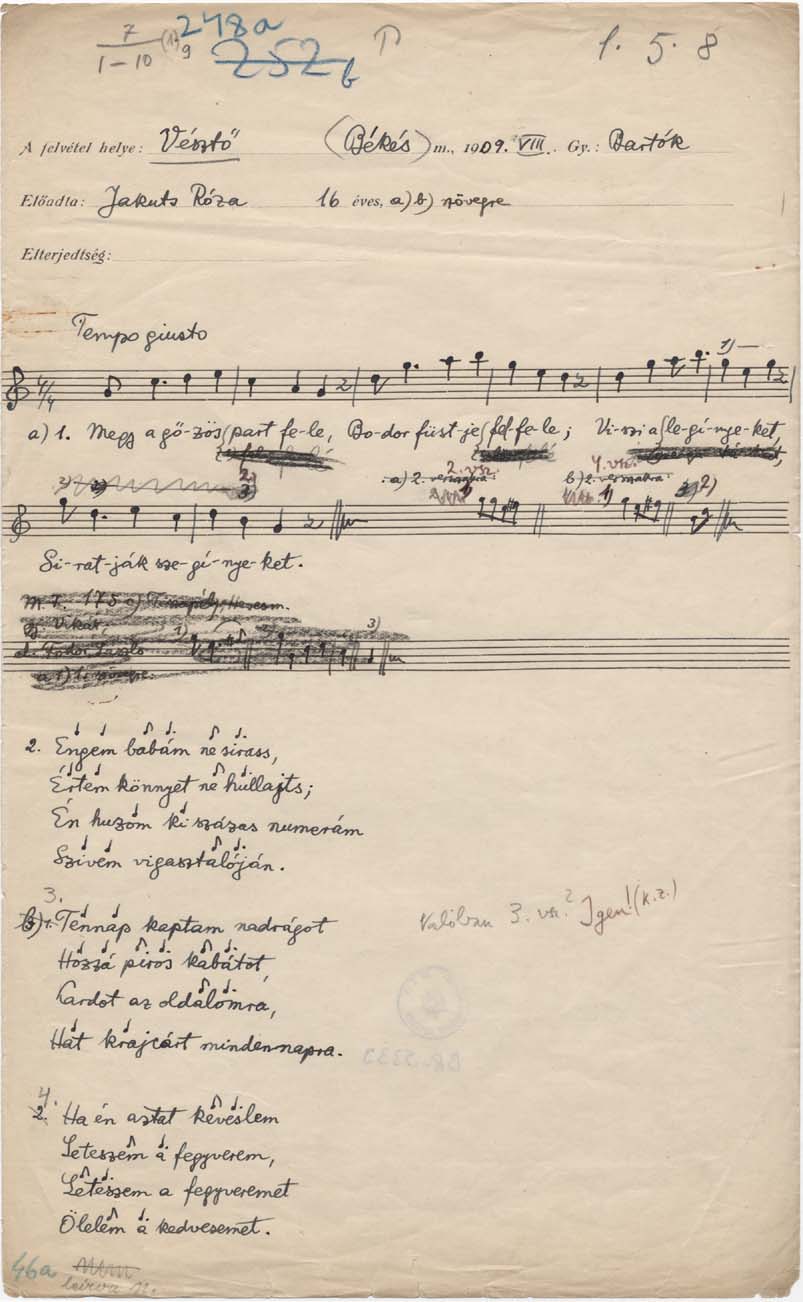 7 (1) 248a
1-10 9 252b
1. 5. 8
A felvétel helye: Vésztő (Békés) m., 1909. VIII. Gy.: Bartók
Előadta: Jakuts Róza 16 éves, a) b) szövegre
Elterjedtség:
Tempo giusto
1)
4/4
a) 1. Megy a gő-zös part fe-le, Bo-dor füst-je fel-fe-le; Vi-szi a le-gí-nye-ket,
3) 2) 3) a) 2. versszakra 2. vsz. b) 2. versszakra 4. vsz. 1) 2)
Si-rat-ják sze-gí-nye-ket.
M.F. 175 c)
Gy. Vikár,
1) 3)
e. Fodor László
2. Engem babám ne sirass,
Értem könnyet ne hullajts;
Én huzom ki százas numerám
Szivem vigasztalóján.
3.
b) 1. Tennap kaptam nadrágot
Valóban 3. vsz.? Igen! (K.Z.)
Hozzá piros kabátot,
Kardot az oldalomra,
Hat krajcárt mindennapra.
4.
2. Ha én aztat kevéslem
Leteszem a fegyverem,
Leteszem a fegyveremet
Ölelem a kedvesemet.
46a
leírva